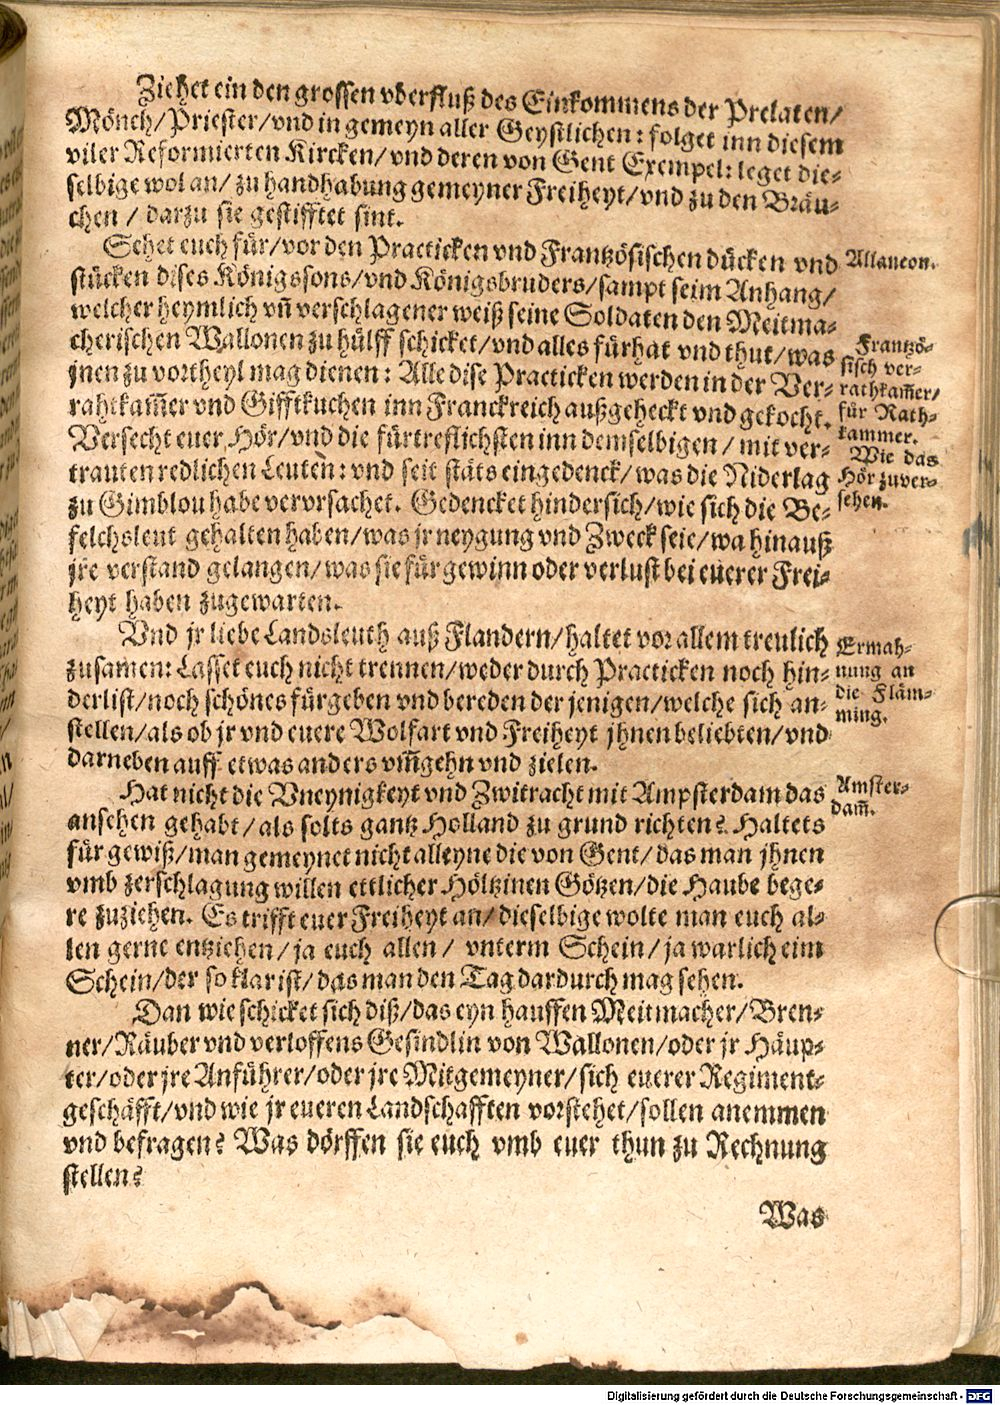 Ziehet ein den grossen vberfluß des Einkommens der Prelaten/
Mönch/Priester/vnd in gemeyn aller Geystlichen: folget inn diesem
viler Reformierten Kircken/vnd deren von Gent Exempel: leget die-
selbige wol an/ zu handhabung gemeyner Freiheyt/vnd zu den Bräu-
chen / darzu sie gestifftet sint.
Sehet euch für/vor den Practicken vnd Frantzösischen dücken vnd
stücken dises Königssons/vnd Königsbruders/sampt seim Anhang/
welcher heymlich vñ verschlagener weiß seine Soldaten den Meitma-
cherischen Wallonen zu hülff schicket/vnd alles fürhat vnd thut/was
jnen zu vortheyl mag dienen: Alle dise Practicken werden in der Ver-
rahtkam̃er vnd Gifftkuchen inn Franckreich außgeheckt vnd gekocht.
Versecht euer Hör/vnd die fürtreflichsten inn demselbigen/ mit ver-
trauten redlichen Leuten: vnd seit stäts eingedenck/was die Niderlag
zu Gimblou habe vervrsachet. Gedencket hindersich/wie sich die Be-
felchsleut gehalten haben/was jr neygung vnd Zweck seie/wa hinauß
jre verstand gelangen/was sie für gewinn oder verlust bei euerer Frei-
heyt haben zugewarten.
Vnd jr liebe Landsleuth auß Flandern/haltet vor allem treulich
zusamen: Lasset euch nicht trennen/weder durch Practicken noch hin-
derlist/noch schönes fürgeben vnd bereden der jenigen/welche sich an-
stellen/als ob jr vnd euere Wolfart vnd Freiheyt jhnen beliebten/vnd
darneben auff etwas anders vm̃gehn vnd zielen.
Hat nicht die Vneynigkeyt vnd Zwitracht mit Ampsterdam das
ansehen gehabt/als solts gantz Holland zu grund richten? Haltets
für gewiß/man gemeynet nicht alleyne die von Gent/das man jhnen
vmb zerschlagung willen ettlicher Höltzinen Götzen/die Haube bege-
re zuziehen. Es trifft euer Freiheyt an/dieselbige wolte man euch al-
len gerne entziehen/ja euch allen/ vnterm Schein/ja warlich eim
Schein/der so klar ist/das man den Tag dardurch mag sehen.
Dan wie schicket sich diß/das eyn hauffen Meitmacher/Bren-
ner/Räuber vnd verloffens Gesindlin von Wallonen/oder jr Häup-
ter/oder jre Anführer/oder jre Mitgemeyner/sich euerer Regiment-
geschäfft/vnd wie jr eueren Landschafften vorstehet/sollen anemmen
vnd befragen? Was dörffen sie euch vmb euer thun zu Rechnung
stellen?
Was
Allancon.
Frantzö-
sisch ver-
rathkam̃er/
für Rath-
kammer.
Wie das
Hör zuver-
sehen.
Ermah-
nung an
die Fläm-
ming.
Amster-
dam̃.
Digitalisierung gefördert durch die Deutsche Forschungsgemeinschaft - DFG